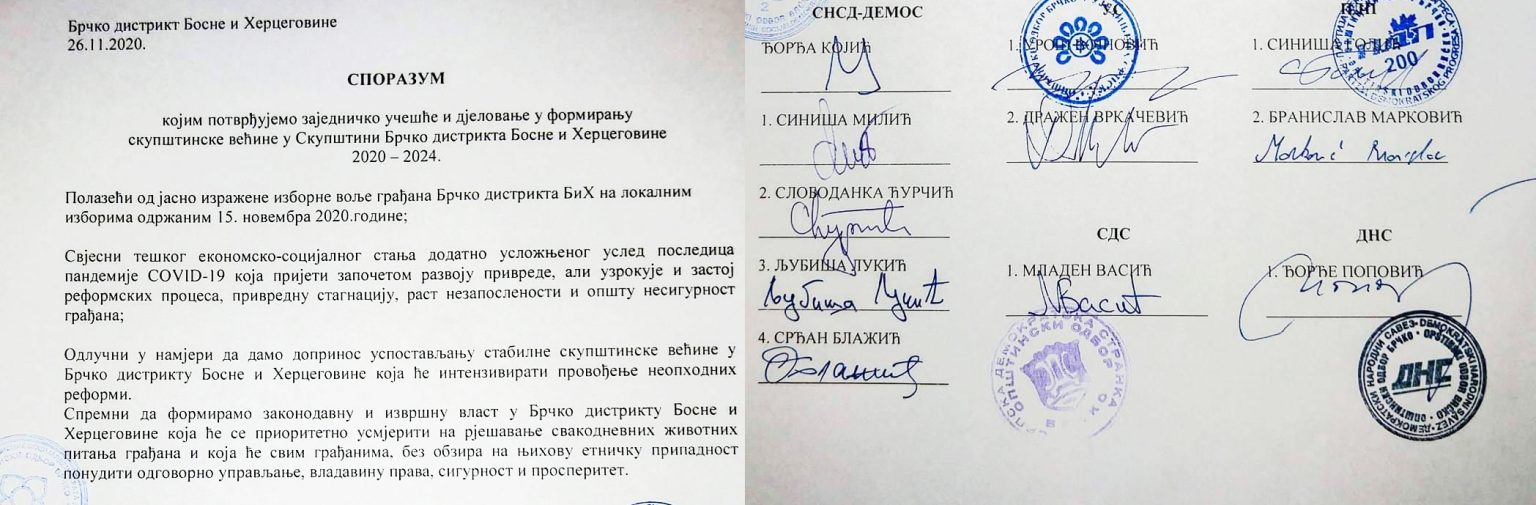 Брчко дистрикт Босне и Херцеговине
26.11.2020.
СПОРАЗУМ
којим потврђујемо заједничко учешће и дјеловање у формирању
скупштинске већине у Скупштини Брчко дистрикта Босне и Херцеговине
2020 – 2024.
Полазећи од јасно изражене изборне воље грађана Брчко дистрикта БиХ на локалним
изборима одржаним 15. новембра 2020.године;
Свјесни тешког економско-социјалног стања додатно усложњеног услед последица
пандемије COVID-19 која пријети започетом развоју привреде, али узрокује и застој
реформских процеса, привредну стагнацију, раст незапослености и општу несигурност
грађана;
Одлучни у намјери да дамо допринос успостављању стабилне скупштинске већине у
Брчко дистрикту Босне и Херцеговине која ће интензивирати провођење неопходних
реформи.
Спремни да формирамо законодавну и извршну власт у Брчко дистрикту Босне и
Херцеговине која ће се приоритетно усмјерити на рјешавање свакодневних животних
питања грађана и која ће свим грађанима, без обзира на њихову етничку припадност
понудити одговорно управљање, владавину права, сигурност и просперитет.
СНСД-ДЕМОС
ЂОРЂА КОЈИЋ
1. СИНИША МИЛИЋ
2. СЛОБОДАНКА ЂУРЧИЋ
3. ЉУБИША ЛУКИЋ
Љубиша Лукић
4. СРЂАН БЛАЖИЋ
УС
1. УРОШ ВОЈНОВИЋ
2. ДРАЖЕН ВРКАЧЕВИЋ
СДС
1. МЛАДЕН ВАСИЋ
МВасић
ПДП
1. СИНИША
200
2. БРАНИСЛАВ МАРКОВИЋ
Marković
ДНС
1. ЂОРЂЕ ПОПОВИЋ
ДНС